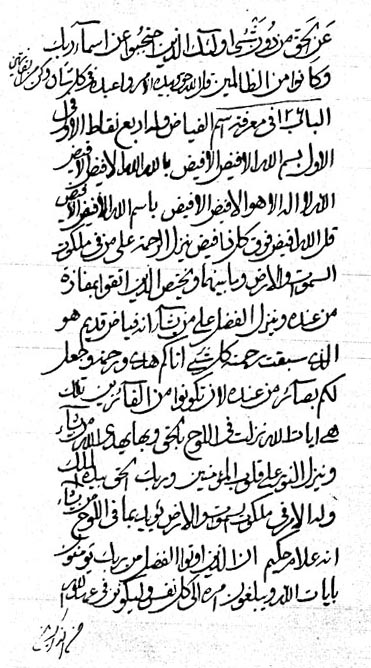 عن الحق من دون شيئا اولئك الذين احتجبوا عن اسماء ربك
وكانوا من الظالمين قل الله حق وبيده الامر واعبده في كل شان وكن
الباب ١٢٦ في معرفة اسم الفياض وله اربع نقاط الاول في
الاول بسم الله الافيض الافيض بالله الله الافيض الافيض
الله لا اله الا هو الافيض الافيض باسم الله الافيض الافيض
قل الله افيض فوق كل ذا فيض ينزل الرحمة على من في ملكوت
السموات والارض وما بينهما ويختص الذين اتقوا بمفازة
من عنده وينزل الفضل على من يشاء انه فياض قديم هو
الذي سبقت رحمته كل شيء اتاكم هدى ورحمة وجعل
لكم بصائر من عنده لان تكونوا من الفائزين تلك
هي ايات الله نزلت في اللوح بالحق وبها يهدي الله من يشاء
وينزل النور على قلب المؤمنين وربك الحق بيده الملك
وله الامر في ملكوت السموات والارض يؤيد بما في اللوح من يشاء
انه علام حكيم ان الذين اوتوا الفضل من ربك يؤمنون
بايات الله ويبلغون امره الى كل نفس وليكونن في